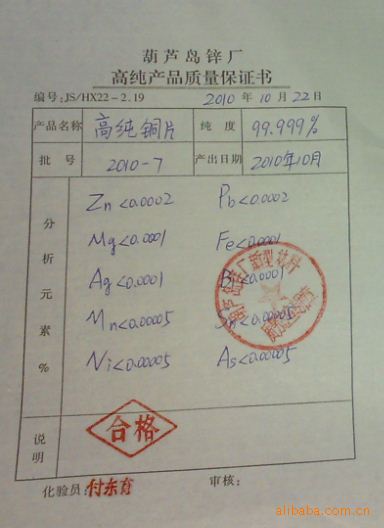 葫芦岛锌厂
高纯产品质量保证书
编号:JS/HX22-2.19 2010 年 10 月 22 日
产品名称 高纯铜片 纯 度 99.999%
批 号 2010-7 产出日期 2010年10月
分析元素%
Zn<0.0002 Pb<0.0002
Mg<0.0001 Fe<0.0001
Ag<0.0001 Bi<0.0001
Mn<0.00005 Sn<0.00005
Ni<0.00005 As<0.00005
说明
合格
化验员: 付东育 审核:
alibaba.com.cn